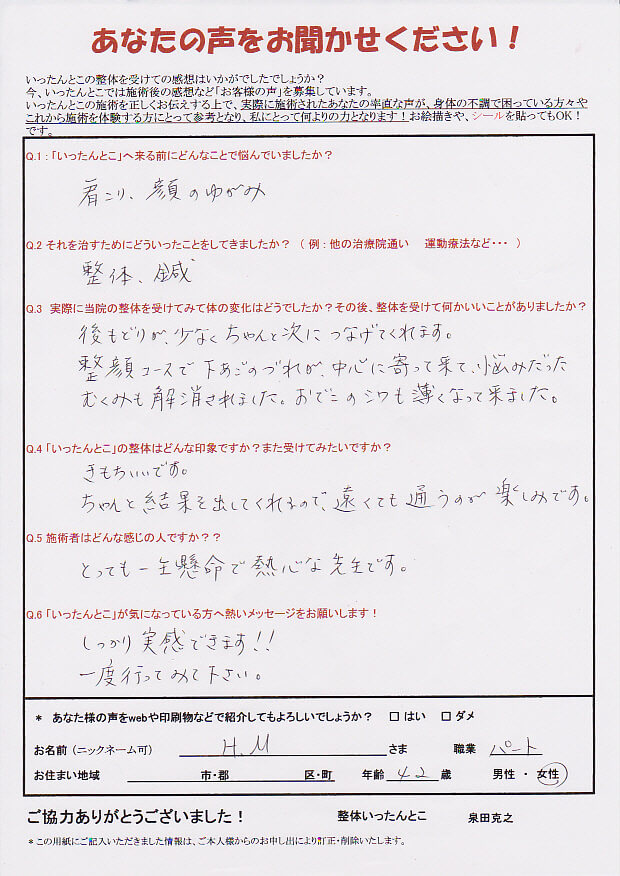 あなたの声をお聞かせください！
いったんとこの整体を受けての感想はいかがでしたでしょうか？
今、いったんとこでは施術後の感想など「お客様の声」を募集しています。
いったんとこの施術を正しくお伝えする上で、実際に施術されたあなたの率直な声が、身体の不調で困っている方々や
これから施術を体験する方にとって参考となり、私にとって何よりの力となります！お絵描きや、シールを貼ってもOK！
です。
Q.1：「いったんとこ」へ来る前にどんなことで悩んでいましたか？
肩こり、顔のゆがみ
Q.2 それを治すためにどういったことをしてきましたか？（例：他の治療院通い　運動療法など・・・ ）
整体、鍼
Q.3 実際に当院の整体を受けてみて体の変化はどうでしたか？その後、整体を受けて何かいいことがありましたか？
後もどりが、少なくちゃんと次につなげてくれます。
整顔コースで下あごのづれが、中心に寄って来て、悩みだった
むくみも解消されました。おでこのシワも薄くなって来ました。
Q.4 「いったんとこ」の整体はどんな印象ですか？また受けてみたいですか？
きもちいいです。
ちゃんと結果を出してくれるので、遠くても通うのが楽しみです。
Q.5 施術者はどんな感じの人ですか？？
とっても一生懸命で熱心な先生です。
Q.6 「いったんとこ」が気になっている方へ熱いメッセージをお願いします！
しっかり実感できます!!
一度行ってみて下さい。
* あなた様の声をwebや印刷物などで紹介してもよろしいでしょうか？ □ はい □ ダメ
お名前（ニックネーム可） H.M さま 職業 パート
お住まい地域 市・郡 区・町 年齢 42 歳 男性 ・ 女性
ご協力ありがとうございました！ 整体いったんとこ 泉田克之
* この用紙にご記入いただきました情報は、ご本人様からのお申し出により訂正・削除いたします。